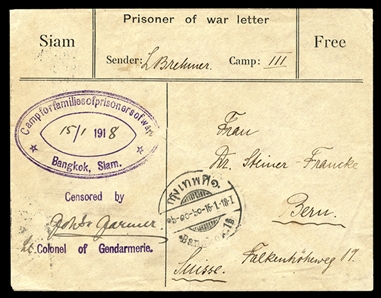 Prisoner of war letter
Siam
Free
Sender: L Brehmer. Camp: III
Camp for families of prisoners of war
15/1 1918
Bangkok, Siam.
Censored by
Lt. Colonel of Gendarmerie.
Frau
Dr. Steiner-Francke
Bern.
Falkenhöheweg 17.
Suisse.